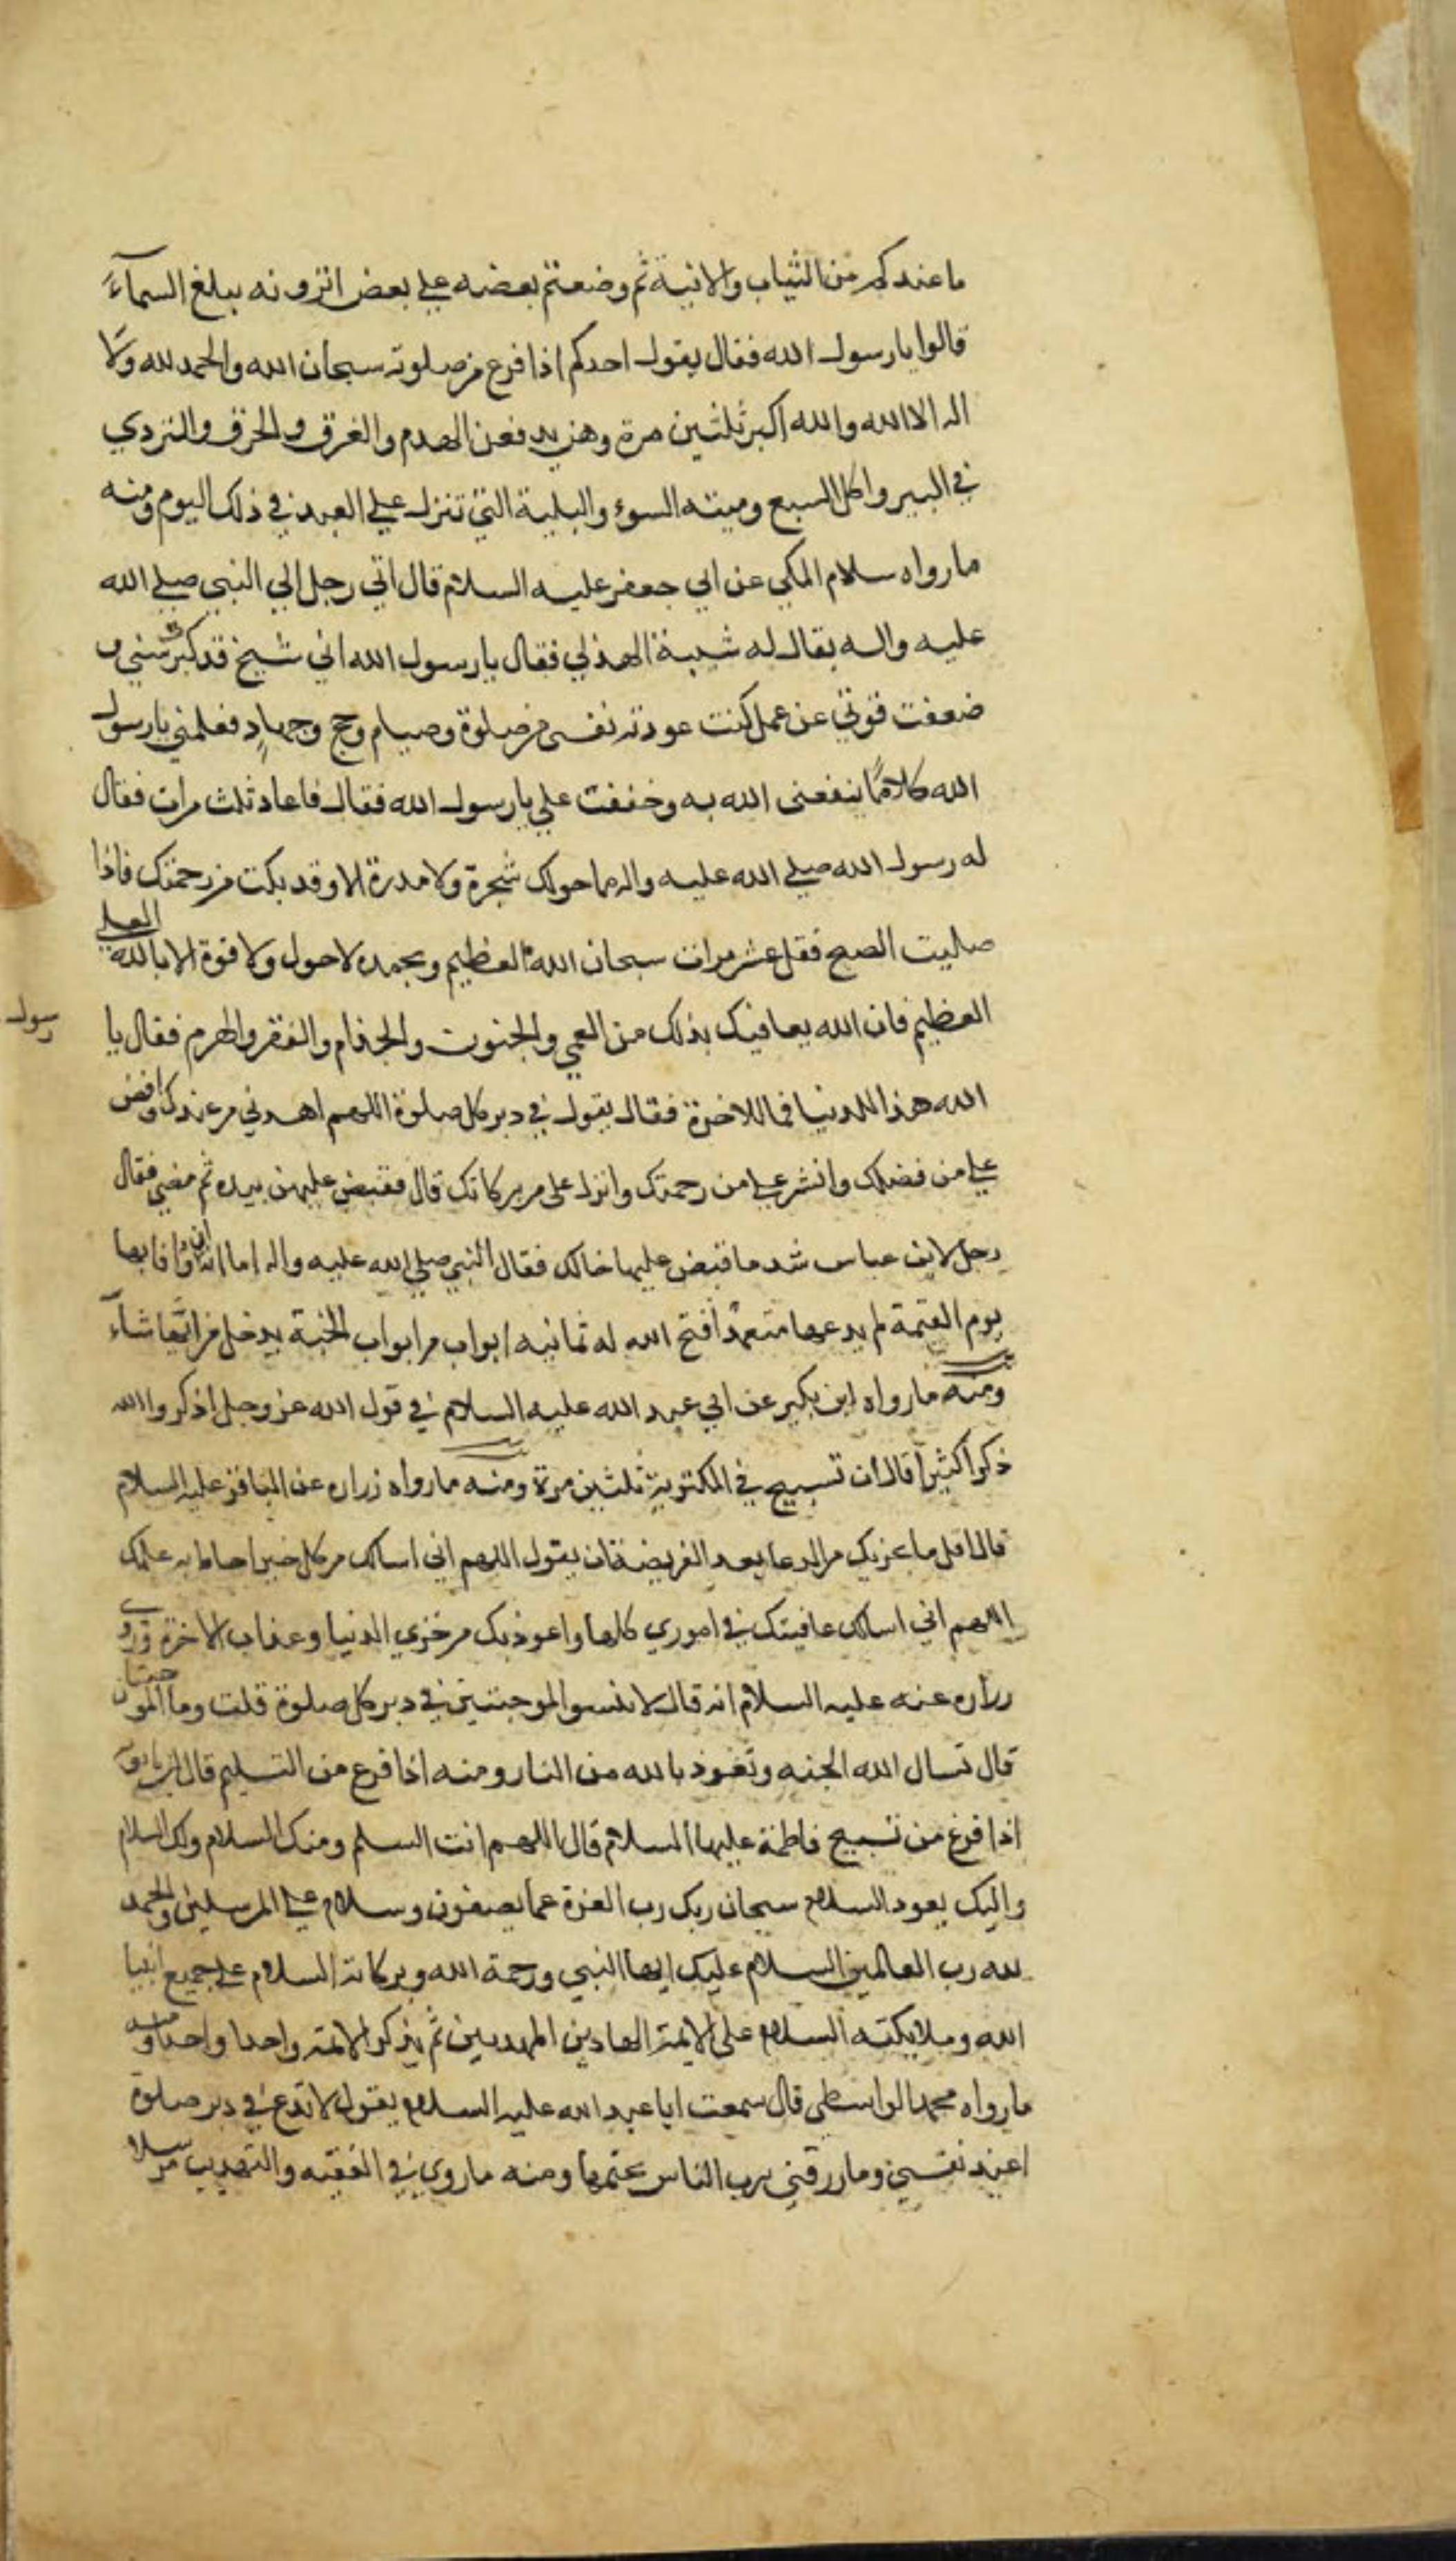 ما عندكم من الثياب والانية ثم وضعتم بعضه علي بعض اترونه يبلغ السمآء
قالوا يا رسول الله فقال يقول احدكم اذا فرغ من صلوته سبحان الله والحمد لله ولا
اله الا الله والله اكبر ثلثين مرة وهن يدفعن الهدم والغرق والحرق والتردي
في البير واكل السبع وميته السوء والبلية التي تنزل علي العبد في ذلك اليوم ومنه
ما رواه سلام المكي عن ابي جعفر عليه السلام قال اتي رجل الي النبي صلي الله
عليه واله يقال له شيبة الهذلي فقال يا رسول الله اني شيخ قد كبر سني و
ضعفت قوتي عن عمل كنت عودته نفسي من صلوة وصيام وحج وجهاد فعلمني يا رسول
الله كلامًا ينفعني الله به وخففت علي يا رسول الله فقال فاعاد ثلث مرات فقال
له رسول الله صلي الله عليه واله ما حولك شجرة ولا مدرة الا وقد بكت من رحمتك فاذا
صليت الصبح فقل عشر مرات سبحان الله العظيم وبحمده لا حول ولا قوة الا بالله العلي
العظيم فان الله يعافيك بذلك من العمي والجنون والجذام والفقر والهرم فقال يا رسول
الله هذا للدنيا فما للاخرة فقال يقول في دبر كل صلوة اللهم اهدني من عندك وافض
علي من فضلك وانشر علي من رحمتك وانزل علي من بركاتك قال فقبض عليهن بيده ثم مضي فقال
رجل لابن عباس شد ما قبض عليها خالك فقال النبي صلي الله عليه واله اما انه ان وافا بها
يوم القيمة لم يدعها متعمدًا فتح الله له ثمانيه ابواب من ابواب الجنة يدخل من ايها شآء
ومنه ما رواه ابن بكير عن ابي عبد الله عليه السلام في قول الله عز وجل اذكروا الله
ذكرا كثيرا قال ان تسبيح في المكتوبة ثلثين مرة ومنه ما رواه زراره عن الباقر عليه السلام
قال اقل ما يجزيك من الدعا بعد الفريضة ان يقول اللهم اني اسالك من كل خير احاط به علمك
اللهم اني اسالك عافيتك في اموري كلها واعوذ بك من خزي الدنيا وعذاب الاخرة وروي
زراره عنه عليه السلام انه قال لا تنسوا الموجبتين في دبر كل صلوة قلت وما الموجبتان
قال تسال الله الجنه وتعوذ بالله من النار ومنه اذا فرغ من التسليم قال ابن بابويه
اذا فرغ من تسبيح فاطمة عليها السلام قال اللهم انت السلم ومنك السلام ولك السلام
واليك يعود السلام سبحان ربك رب العزة عما يصفون وسلام علي المرسلين والحمد
لله رب العالمين السلام عليك ايها النبي ورحمة الله وبركاته السلام علي جميع انبيا
الله وملايكته السلام علي الايمة الهادين المهديين ثم يذكر الايمة واحدا واحدا ومنه
ما رواه محمد الواسطي قال سمعت ابا عبد الله عليه السلام يقول لا تدع في دبر صلوة
اعيذ نفسي وما رزقني برب الناس يختمها ومنه ما روي في الفقيه والتهذيب مرسلا